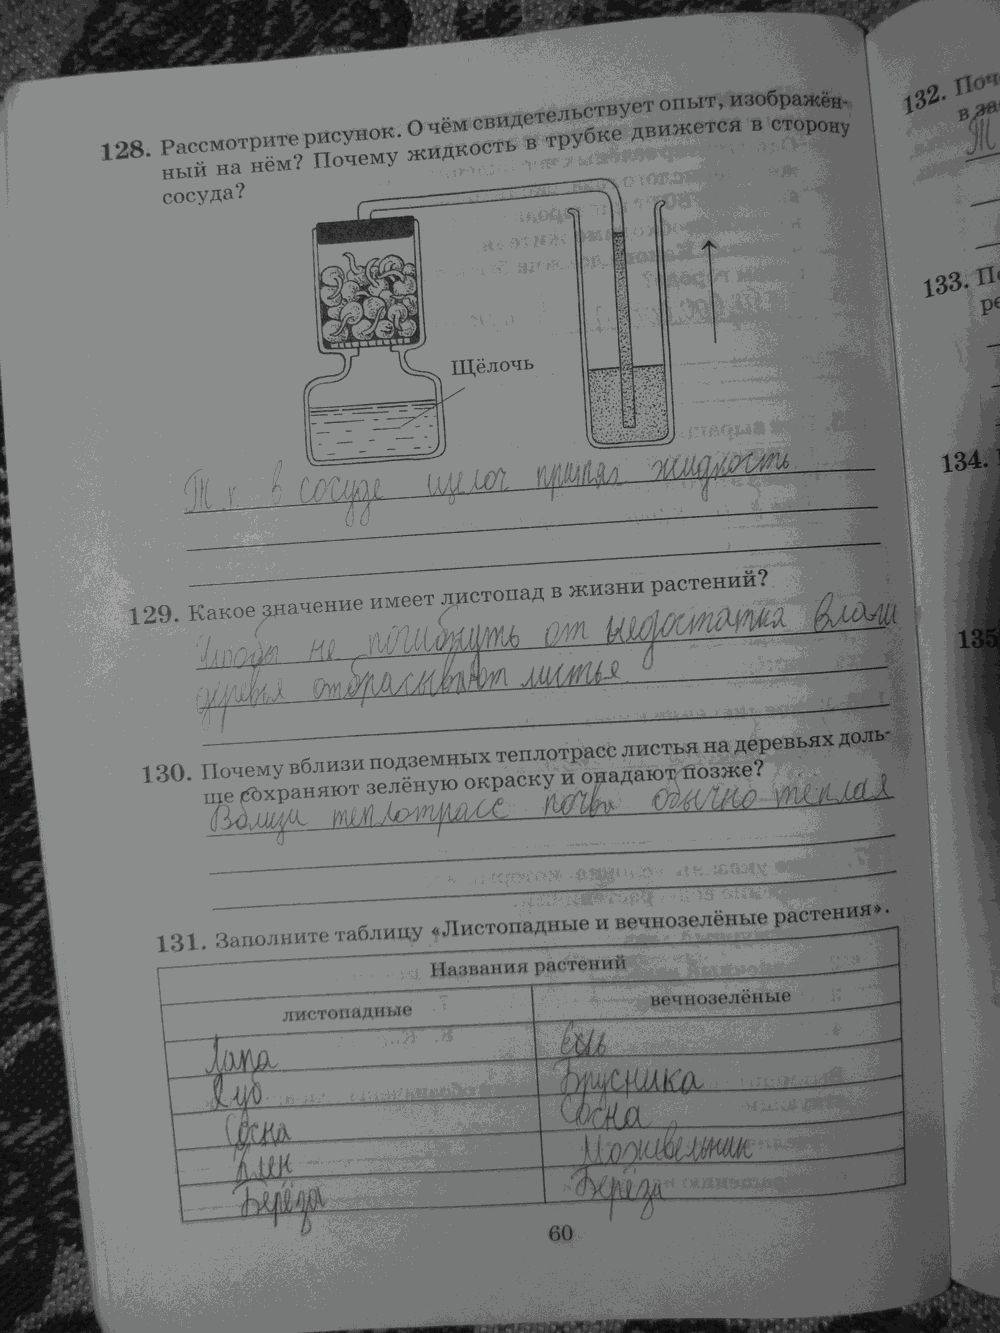 128. Рассмотрите рисунок. О чём свидетельствует опыт, изображён-
ный на нём? Почему жидкость в трубке движется в сторону
сосуда?
Щёлочь
Т.к. в сосуде щелоч жидкость
129. Какое значение имеет листопад в жизни растений?
Чтобы не погибнуть от недостатка влаги
деревья отбрасывают листья
130. Почему вблизи подземных теплотрасс листья на деревьях доль-
ше сохраняют зелёную окраску и опадают позже?
Вблизи теплотрасс почва обычно тёплая
131. Заполните таблицу «Листопадные и вечнозелёные растения».
Названия растений
листопадные вечнозелёные
Ель
Дуб Брусника
Сосна Сосна
Клен Можевельник
Берёза Берёза
60
132. Поч
в за
Т
133. По
ре
134.
135